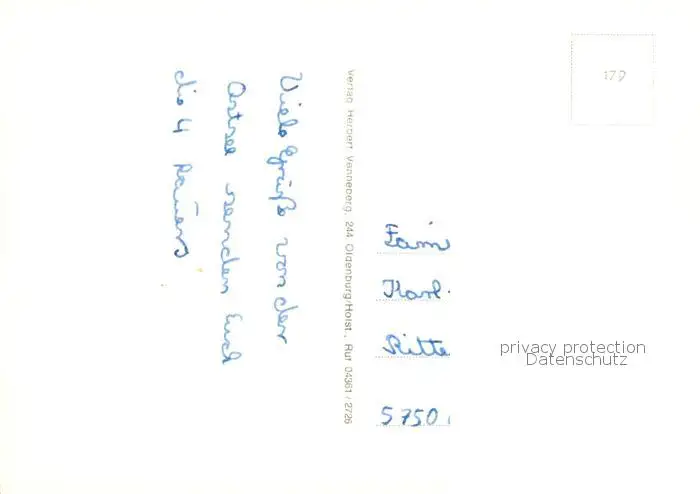 Viele Grüße von der
Ostsee senden Euch
die 4
Verlag Herbert Venneberg, 244 Oldenburg/Holst., Ruf 04361/2726
179
Fam
Karl
Ritte
5750
privacy protection
Datenschutz